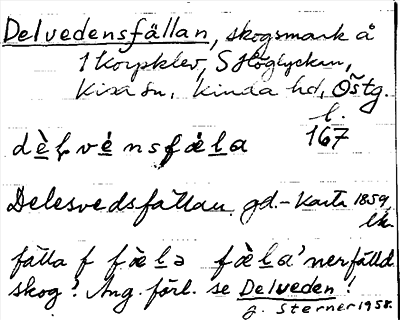 Delvedensfällan, skogsmark å
1 Korpklev, S Höglyckan,
Kisa sn, Kinda hd, Östg.
l.
167
dèlvénsfä̀la
Delesvedsfällan gd.-karta 1859,
lk.
fälla f fä̀lə fä̀la 'nerfälld
skog'. Ang. förl. se Delveden!
J. Sterner 1958.